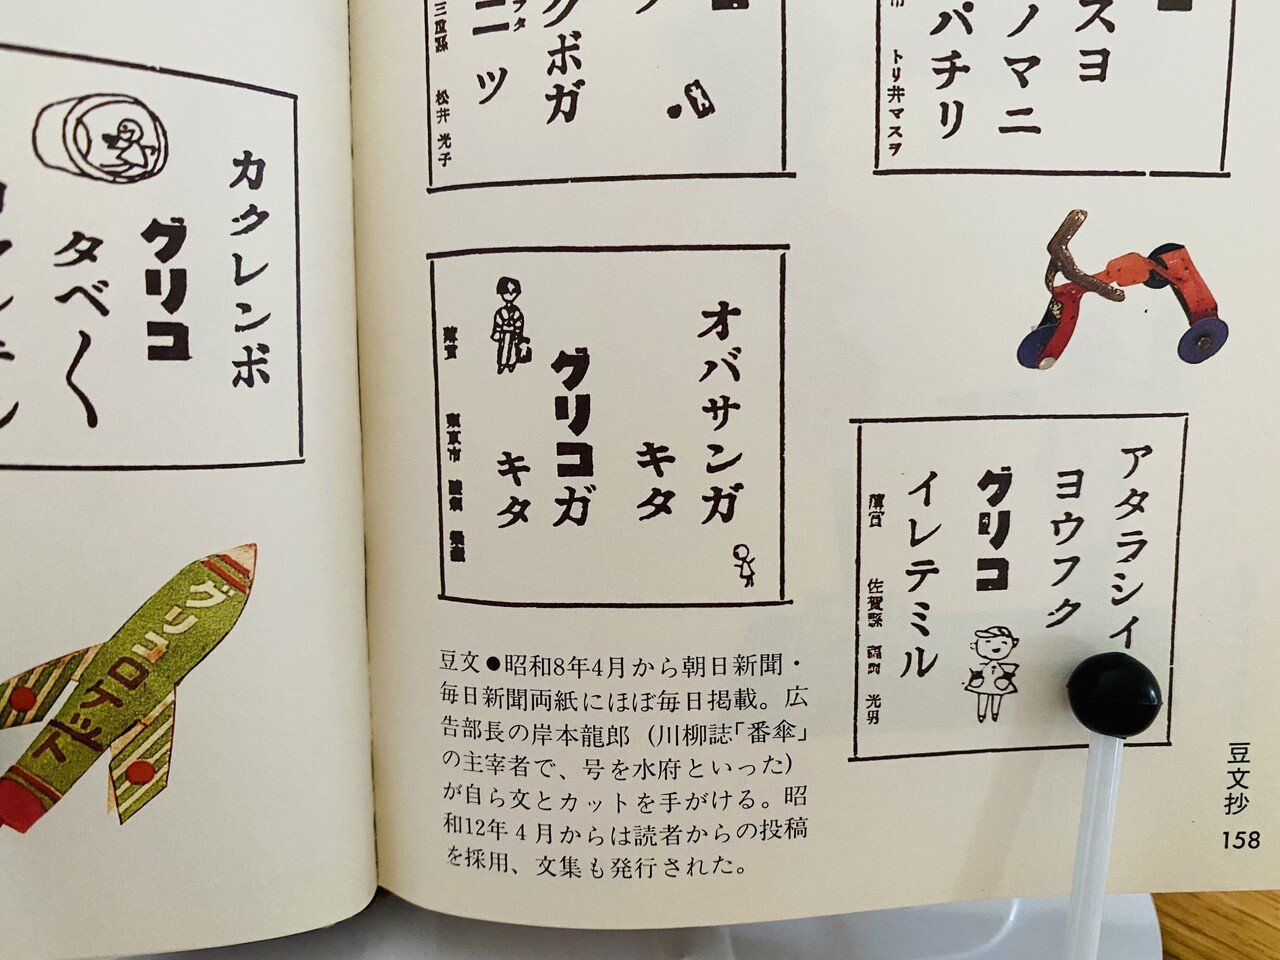 スヨ
ノマニ
パチリ
トリ井マスヲ
クボガ
ニツ
松井光子
オバサンガ
キタ
グリコガ
キタ
薄賞
アタラシイ
ヨウフク
グリコ
イレテミル
薄賞 佐賀縣 光男
豆文●昭和8年4月から朝日新聞・
毎日新聞両紙にほぼ毎日掲載。広
告部長の岸本龍郎(川柳誌「番傘」
の主宰者で、号を水府といった)
が自ら文とカットを手がける。昭
和12年4月からは読者からの投稿
を採用、文集も発行された。
豆文抄
158
カクレンボ
グリコ
タベ〱
グリコロケット